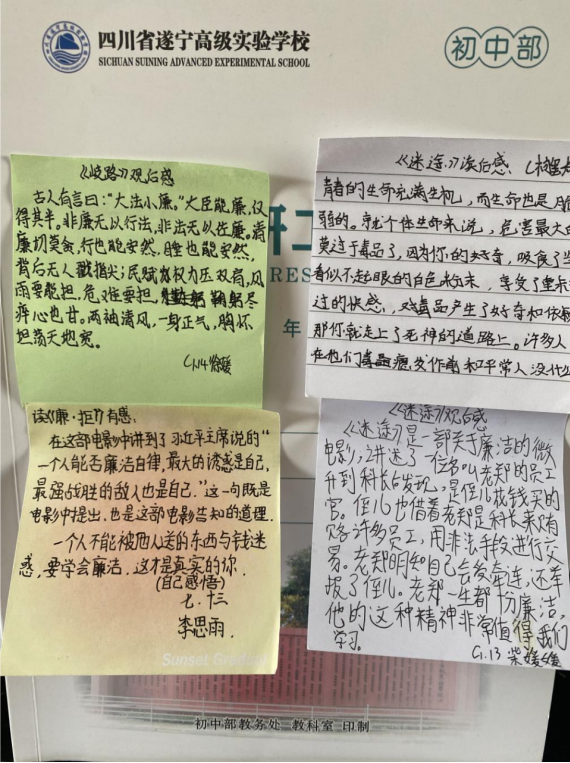 四川省遂宁高级实验学校
SICHUAN SUINING ADVANCED EXPERIMENTAL SCHOOL
初中部
《歧路》观后感
古人有言曰：“大法小廉。”大臣能廉，仅
得其半。非廉无以行法，非法无以佐廉。清
廉切莫贪，行也能安然，睡也能安然，
背后无人戳指尖；民赋权力压双肩，风
雨要能担，危难要担，鞠躬尽
瘁心也甘。两袖清风，一身正气，胸怀
坦荡天地宽。
《迷途》读后感.
青的生命充满生机，而生命也是脆
弱的。就个体生命来说，危害最大的
莫过于毒品了，因为你的好奇，吸食了
看似不起眼的白色粉末，享受了
过的快感，对毒品产生了好奇和依赖
那你就走上了死神的道路上。许多人
在他们毒瘾发作前和平常人没什么
RES
年
读《廉·拒》有感：
在这部电影中讲到了习近平主席说的“
一个人能否廉洁自律，最大的诱惑是自己，
最强战胜的敌人也是自己.”这一句既是
电影中提出，也是这部电影告知的道理.
一个人不能被他人送的东西与钱迷
惑，要学会廉洁.这才是真实的你.
(自己感悟)
七.十三
李思雨.
《迷途》观后感
《迷途》是一部关于廉洁的微
电影，讲述了一位名叫老郑的员工
升到科长后发现，是侄儿花钱买的
官。侄儿也借着老郑是科长来贿
赂许多员工，用非法手段进行交
易。老郑明知自己会受牵连，还举
报了侄儿。老郑一生都十份廉洁，
他的这种精神非常值得我们
学习。
G.13 柴媛媛
Sunset Gra
初中部教务处 教科室 印制